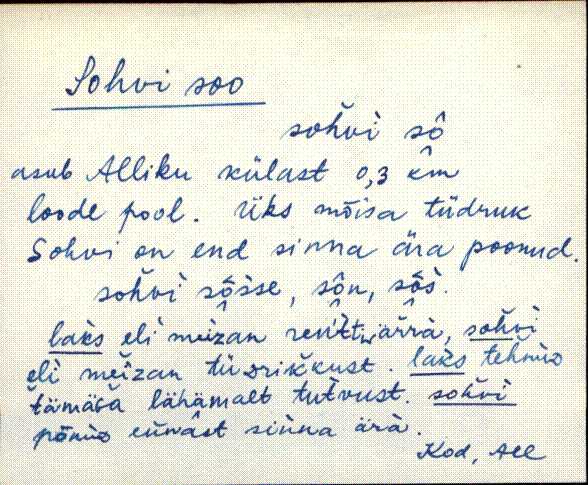 Sohvi soo
sohvi sô
asub Alliku külast 0,3 km
loode pool. Üks mõisa tüdruk
Sohvi on end sinna ära poonud.
sohvi sõ̂sse, sôn, sôs.
laks eli meizan ärrä, sohvi
eli meizan tüdrikkust. laks tehnüo
lähämalt tutvust. sohvi
sinna ärä.
Kod, All